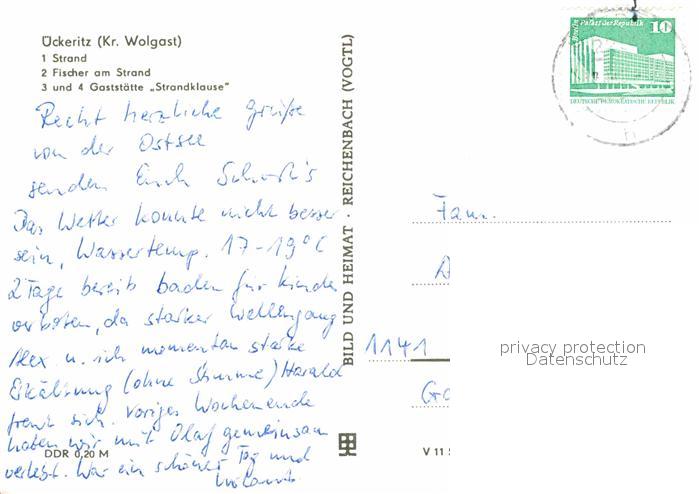 Ückeritz (Kr. Wolgast)
1 Strand
2 Fischer am Strand
3 und 4 Gaststätte „Strandklause"
Recht herzliche Grüße
von der Ostsee
senden Euch
Das Wetter konnte nicht besser
sein, Wassertemp. 17-19°C
2 Tage bereits baden für Kinder
verboten, da starker Wellengang
Alex u. ich momentan starke
Erkältung (ohne Stimme) Harald
freut sich. Voriges Wochenende
haben wir mit Olaf gemeinsam
verlebt. War ein schöner Tag und
DDR 0,20 M
BILD UND HEIMAT · REICHENBACH (VOGTL)
V 11
Berlin, Palast der Republik
10
DEUTSCHE DEMOKRATISCHE REPUBLIK
Fam.
1141
privacy protection
Datenschutz